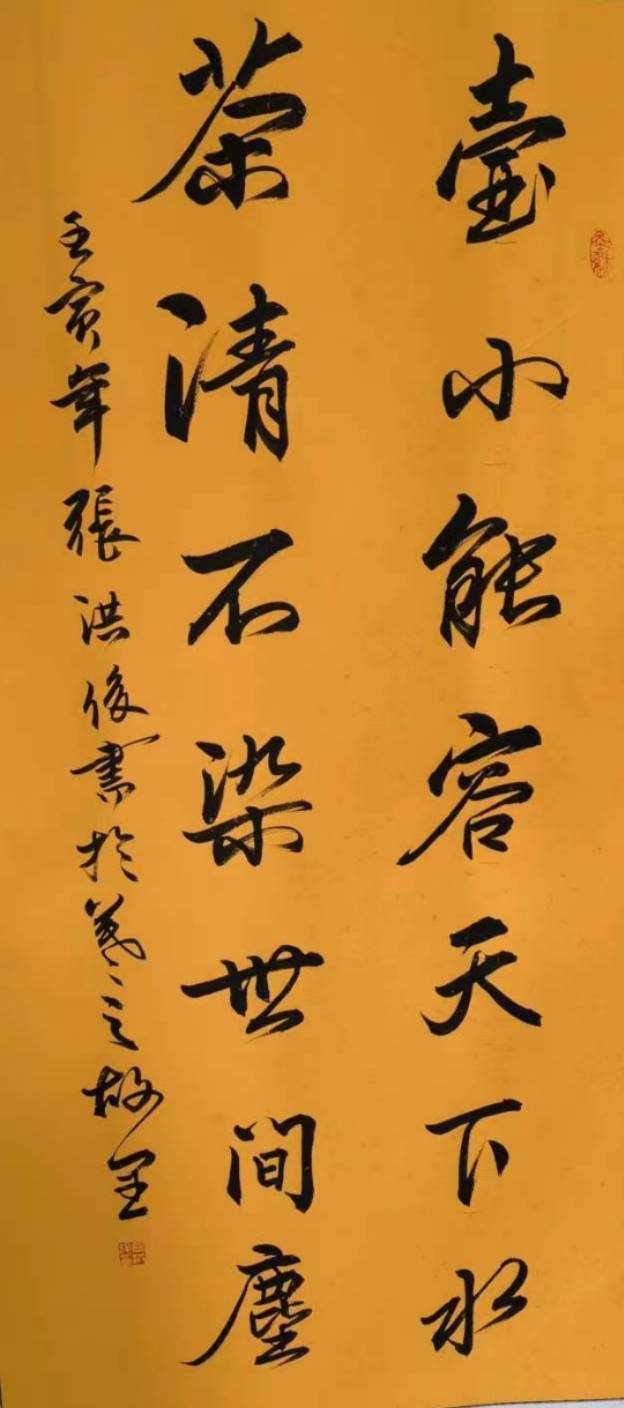 壺小能容天下水
茶清不染世間塵
壬寅年張洪俊書於羲之故里